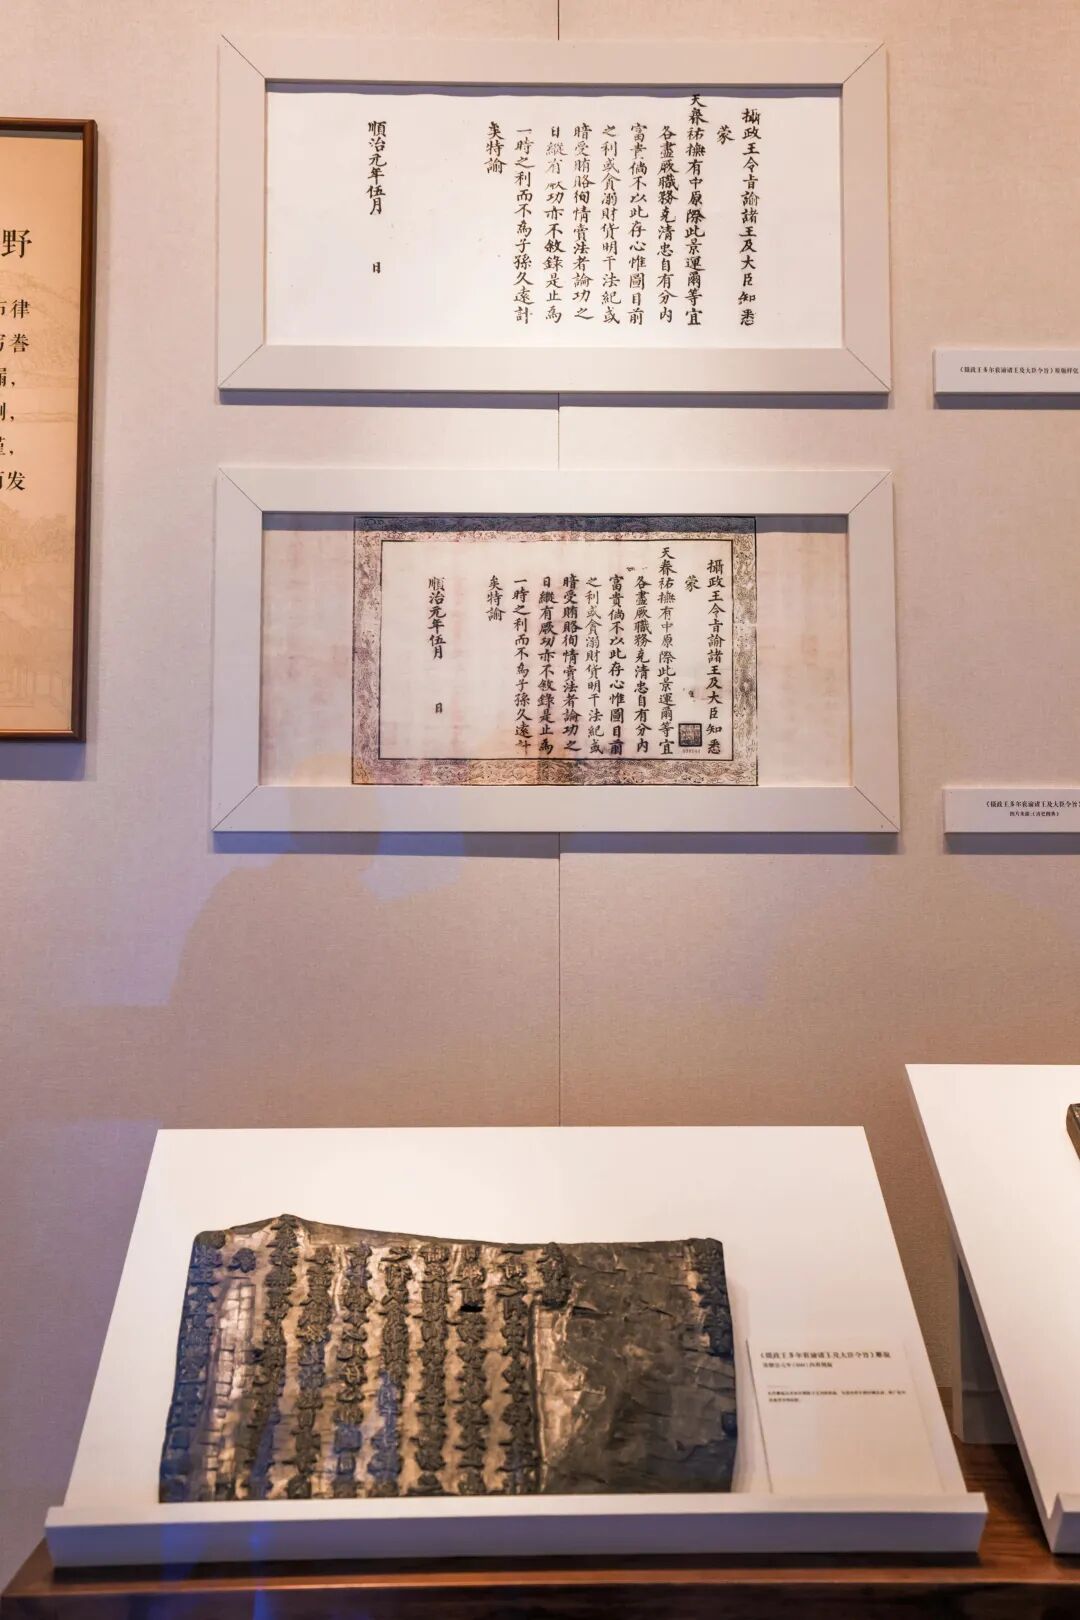 攝政王令旨諭諸王及大臣知悉
蒙
天眷祐撫有中原際此景運爾等宜
各盡厥職務克清忠自有分內
富貴倘不以此存心惟圖目前
之利或貪溺財貨明干法紀或
暗受賄賂徇情賣法者論功之
日縱有厥功亦不敘錄是止為
一時之利而不為子孫久遠計
矣特諭
順治元年伍月 日
《摄政王多尔衮谕诸王及大臣令旨》原版样张
攝政王令旨諭諸王及大臣知悉
蒙
天眷祐撫有中原際此景運爾等宜
各盡厥職務克清忠自有分內
富貴倘不以此存心惟圖目前
之利或貪溺財貨明干法紀或
暗受賄賂徇情賣法者論功之
日縱有厥功亦不敘錄是止為
一時之利而不為子孫久遠計
矣特諭
順治元年伍月 日
《摄政王多尔衮谕诸王及大臣令旨》
图片来源:《清史图典》
《摄政王多尔衮谕诸王及大臣令旨》雕版
野
律
卷
而发